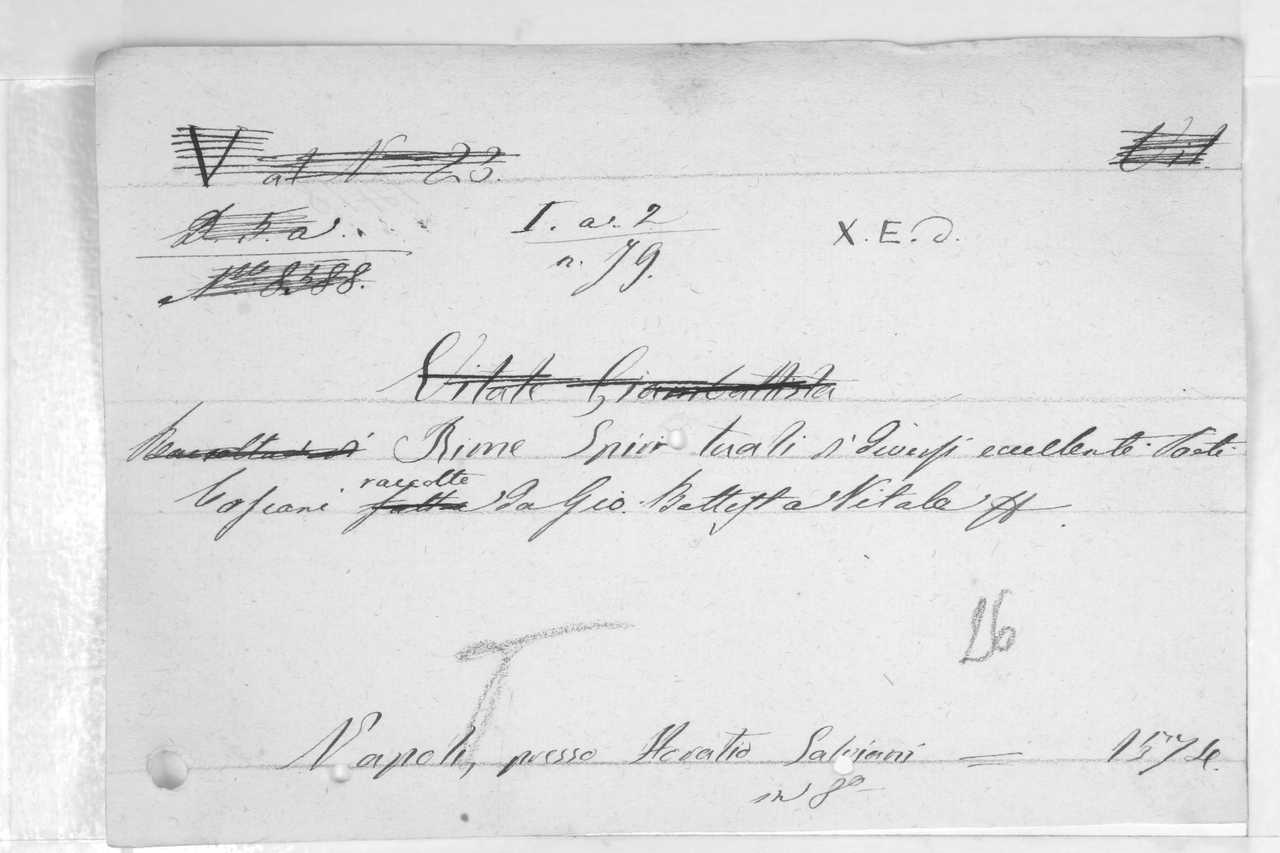 V at N 23. Vit.
D. 5. a. I. a. 2 X. E. d.
N.ro 8588. n. 79.
Vitale Giambattista
Raccolta di Rime Spirituali di diversi eccellenti Poeti
raccolte
Toscani fatta da Gio. Battista Vitale
16
T
Napoli, presso Horatio Salviani = 1574.
in 8º